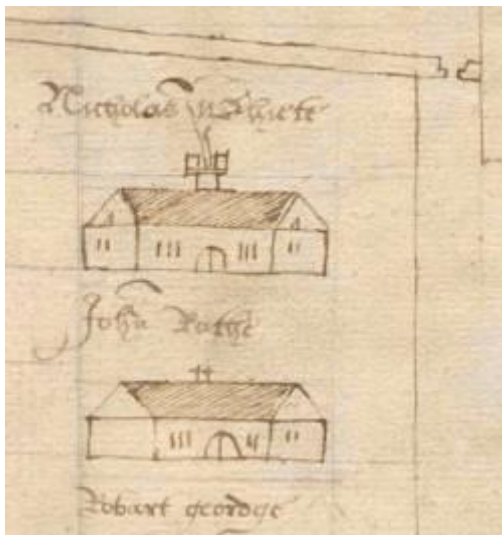 Nicholas Whete
John Rothe
Robart geordge